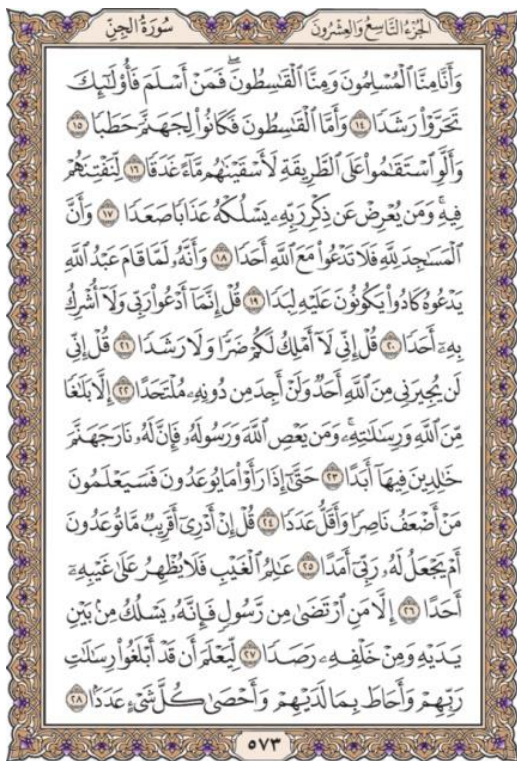 الجزء التاسع والعشرون
سورة الجن
وَأَنَّا مِنَّا ٱلْمُسْلِمُونَ وَمِنَّا ٱلْقَـٰسِطُونَ ۖ فَمَنْ أَسْلَمَ فَأُو۟لَـٰٓئِكَ
تَحَرَّوْا۟ رَشَدًا ١٤ وَأَمَّا ٱلْقَـٰسِطُونَ فَكَانُوا۟ لِجَهَنَّمَ حَطَبًا ١٥
وَأَلَّوِ ٱسْتَقَـٰمُوا۟ عَلَى ٱلطَّرِيقَةِ لَأَسْقَيْنَـٰهُم مَّآءً غَدَقًا ١٦ لِّنَفْتِنَهُمْ
فِيهِ ۚ وَمَن يُعْرِضْ عَن ذِكْرِ رَبِّهِۦ يَسْلُكْهُ عَذَابًا صَعَدًا ١٧ وَأَنَّ
ٱلْمَسَـٰجِدَ لِلَّهِ فَلَا تَدْعُوا۟ مَعَ ٱللَّهِ أَحَدًا ١٨ وَأَنَّهُۥ لَمَّا قَامَ عَبْدُ ٱللَّهِ
يَدْعُوهُ كَادُوا۟ يَكُونُونَ عَلَيْهِ لِبَدًا ١٩ قُلْ إِنَّمَآ أَدْعُوا۟ رَبِّى وَلَآ أُشْرِكُ
بِهِۦٓ أَحَدًا ٢٠ قُلْ إِنِّى لَآ أَمْلِكُ لَكُمْ ضَرًّا وَلَا رَشَدًا ٢١ قُلْ إِنِّى
لَن يُجِيرَنِى مِنَ ٱللَّهِ أَحَدٌ وَلَنْ أَجِدَ مِن دُونِهِۦ مُلْتَحَدًا ٢٢ إِلَّا بَلَـٰغًا
مِّنَ ٱللَّهِ وَرِسَـٰلَـٰتِهِۦ ۚ وَمَن يَعْصِ ٱللَّهَ وَرَسُولَهُۥ فَإِنَّ لَهُۥ نَارَ جَهَنَّمَ
خَـٰلِدِينَ فِيهَآ أَبَدًا ٢٣ حَتَّىٰٓ إِذَا رَأَوْا۟ مَا يُوعَدُونَ فَسَيَعْلَمُونَ
مَنْ أَضْعَفُ نَاصِرًا وَأَقَلُّ عَدَدًا ٢٤ قُلْ إِنْ أَدْرِىٓ أَقَرِيبٌ مَّا تُوعَدُونَ
أَمْ يَجْعَلُ لَهُۥ رَبِّىٓ أَمَدًا ٢٥ عَـٰلِمُ ٱلْغَيْبِ فَلَا يُظْهِرُ عَلَىٰ غَيْبِهِۦٓ
أَحَدًا ٢٦ إِلَّا مَنِ ٱرْتَضَىٰ مِن رَّسُولٍ فَإِنَّهُۥ يَسْلُكُ مِنۢ بَيْنِ
يَدَيْهِ وَمِنْ خَلْفِهِۦ رَصَدًا ٢٧ لِّيَعْلَمَ أَن قَدْ أَبْلَغُوا۟ رِسَـٰلَـٰتِ
رَبِّهِمْ وَأَحَاطَ بِمَا لَدَيْهِمْ وَأَحْصَىٰ كُلَّ شَىْءٍ عَدَدًۢا ٢٨
٥٧٣